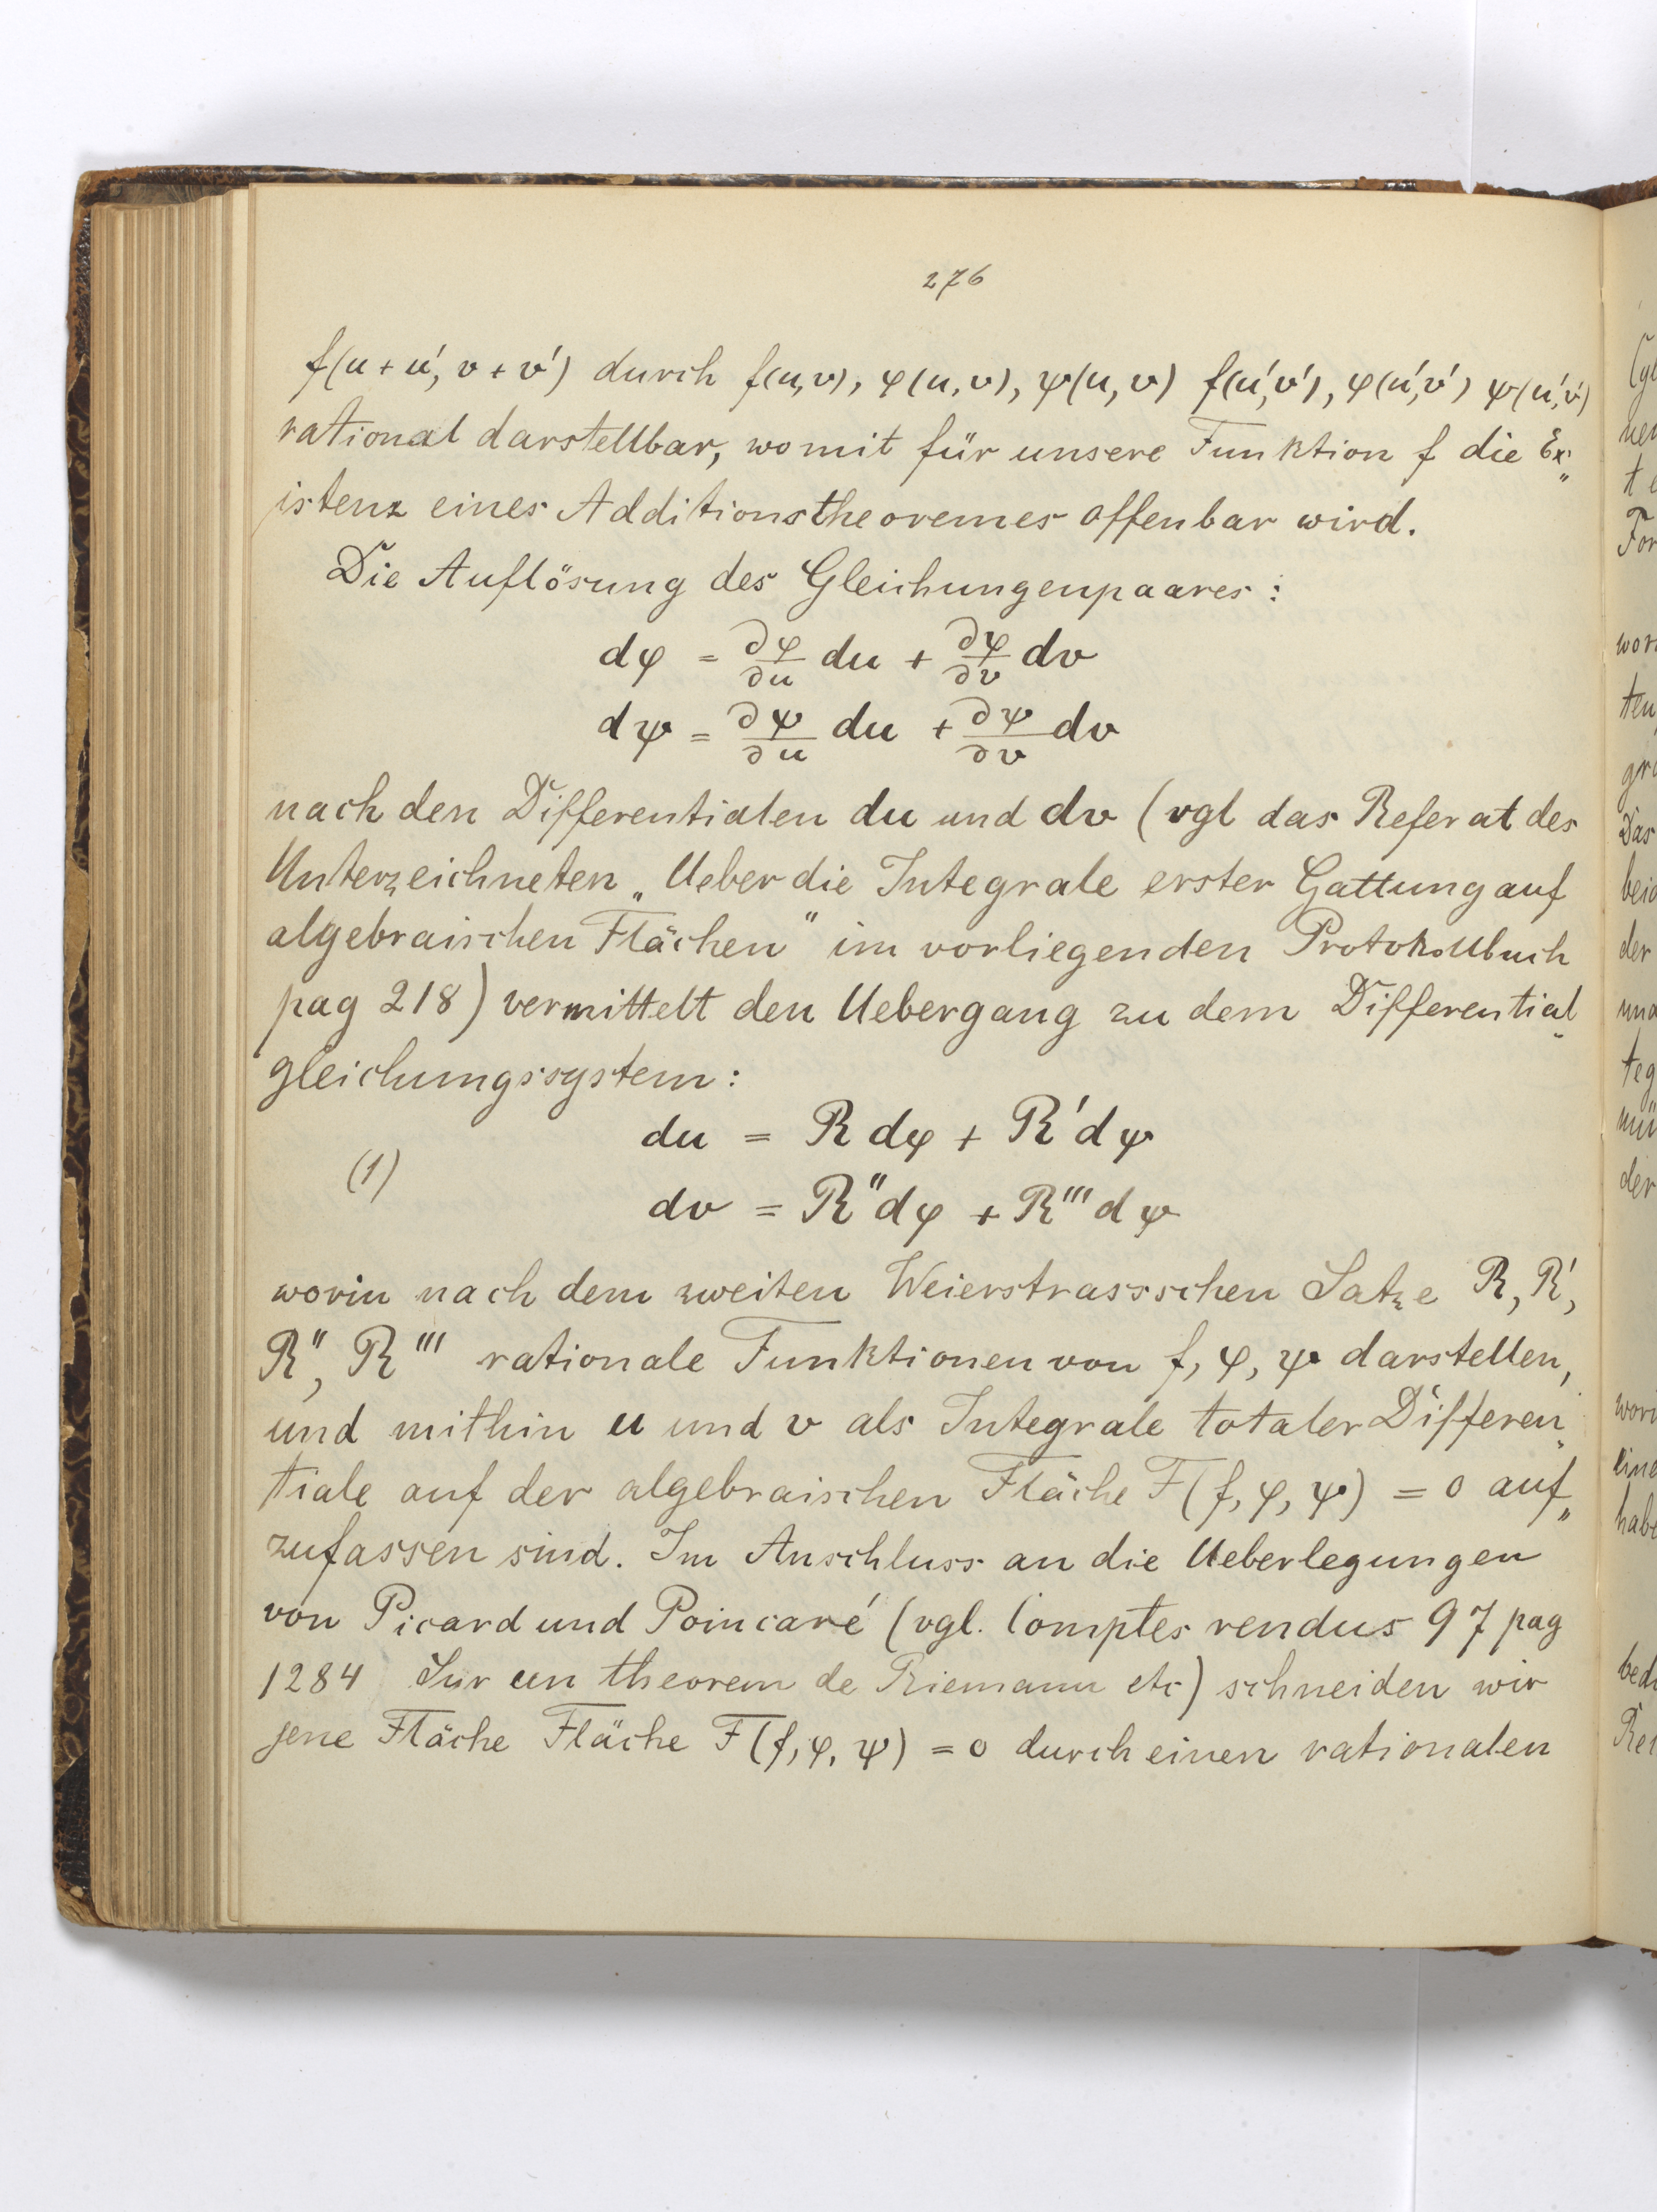 276
f(u+u', v+v') durch f(u,v), φ(u,v), ψ(u,v) f(u',v'), φ(u',v') ψ(u',v')
rational darstellbar, womit für unsere Funktion f die Ex„
istenz eines Additionstheoremes offenbar wird.
Die Auflösung des Gleichungenpaares:
dφ = ∂φ/∂u du + ∂φ/∂v dv
dψ = ∂ψ/∂u du + ∂ψ/∂v dv
nach den Differentialen du und dv (vgl das Referat des
Unterzeichneten „Ueber die Integrale erster Gattung auf
algebraischen Flächen" im vorliegenden Protokollbuch
pag 218) vermittelt den Uebergang zu dem Differential„
gleichungssystem:
du = R dφ + R' dψ
(1)
dv = R'' dφ + R''' dψ
worin nach dem zweiten Weierstrassschen Satze R, R',
R'', R''' rationale Funktionen von f, φ, ψ darstellen,
und mithin u und v als Integrale totaler Differen„
tiale auf der algebraischen Fläche F(f, φ, ψ) = 0 auf„
zufassen sind. Im Anschluss an die Ueberlegungen
von Picard und Poincaré (vgl. Comptes rendus 97 pag
1284 Sur un theorem de Riemann etc) schneiden wir
jene Fläche Fläche F(f, φ, ψ) = 0 durch einen rationalen